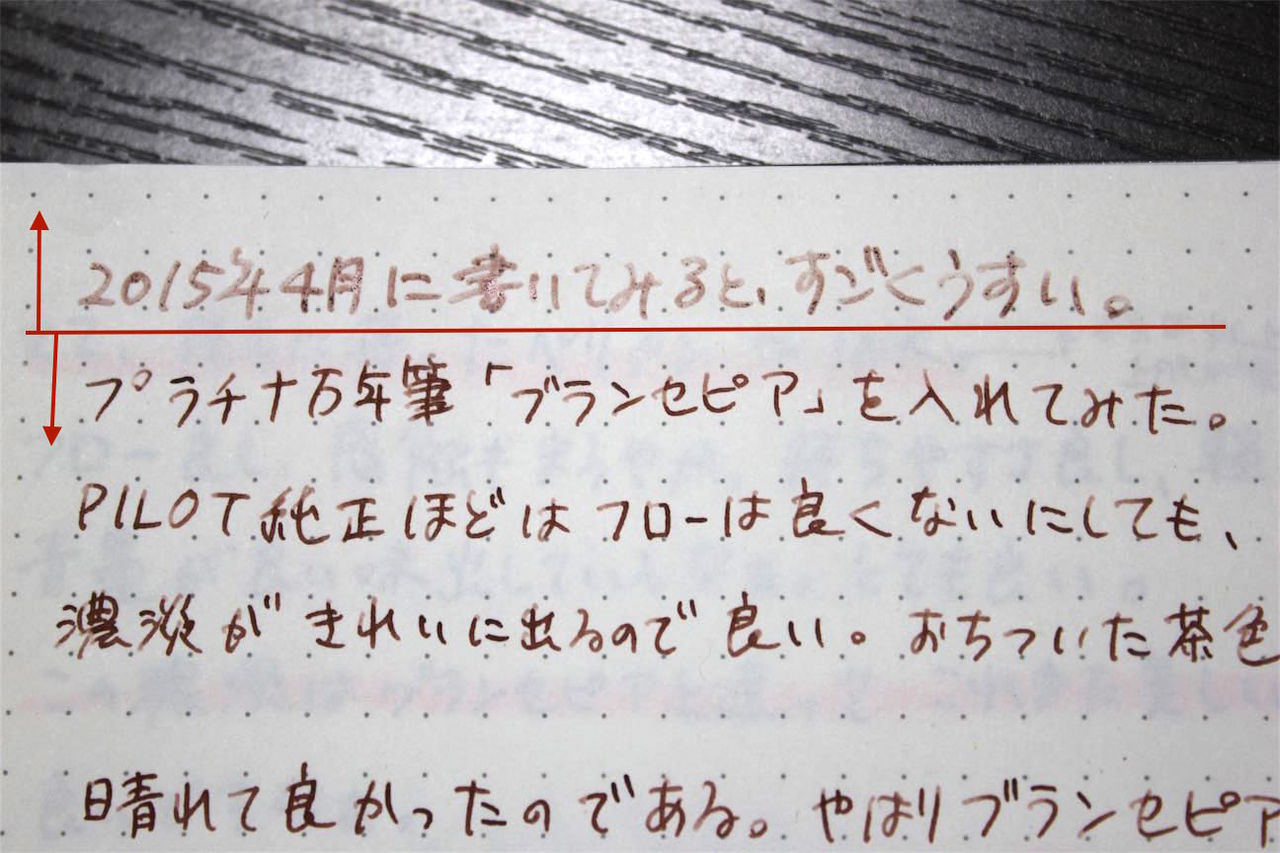 2015年4月に書いてみると、すごくうすい。
プラチナ万年筆「ブランセピア」を入れてみた。
PILOT純正ほどはフローは良くないにしても、
濃淡がきれいに出るので良い。おちついた茶色
日晴れて良かったのである。やはりブランセピア